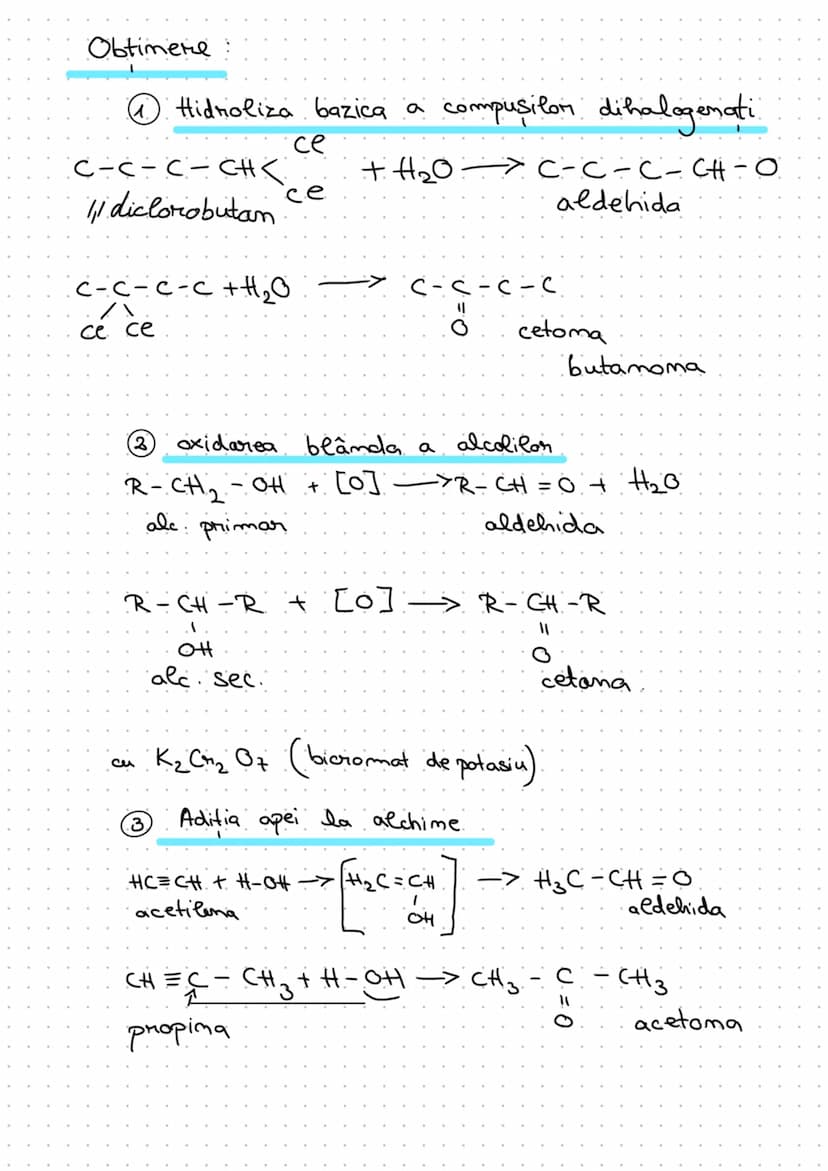 Obținere :
① Hidroliza bazica a compușilor dihalogenați
Cl
C-C-C-CH< + H₂O → C-C-C-CH-O
Cl
1,1 diclorobutan aldehida
C-C-C-C + H₂O → C-C-C-C
/ \ ||
Cl Cl O cetona
butanona
② oxidarea blânda a alcolilor
R-CH₂-OH + [O] → R-CH=O + H₂O
alc. primar aldehida
R-CH-R + [O] → R-CH-R
| ||
OH O
alc. sec. cetona.
cu K₂Cr₂O₇ (bicromat de potasiu)
③ Adiția apei la alchine
HC≡CH + H-OH → [H₂C=CH] → H₃C-CH=O
|
OH
acetilena aldehida
CH≡C-CH₃ + H-OH → CH₃-C-CH₃
||
O
propina acetona